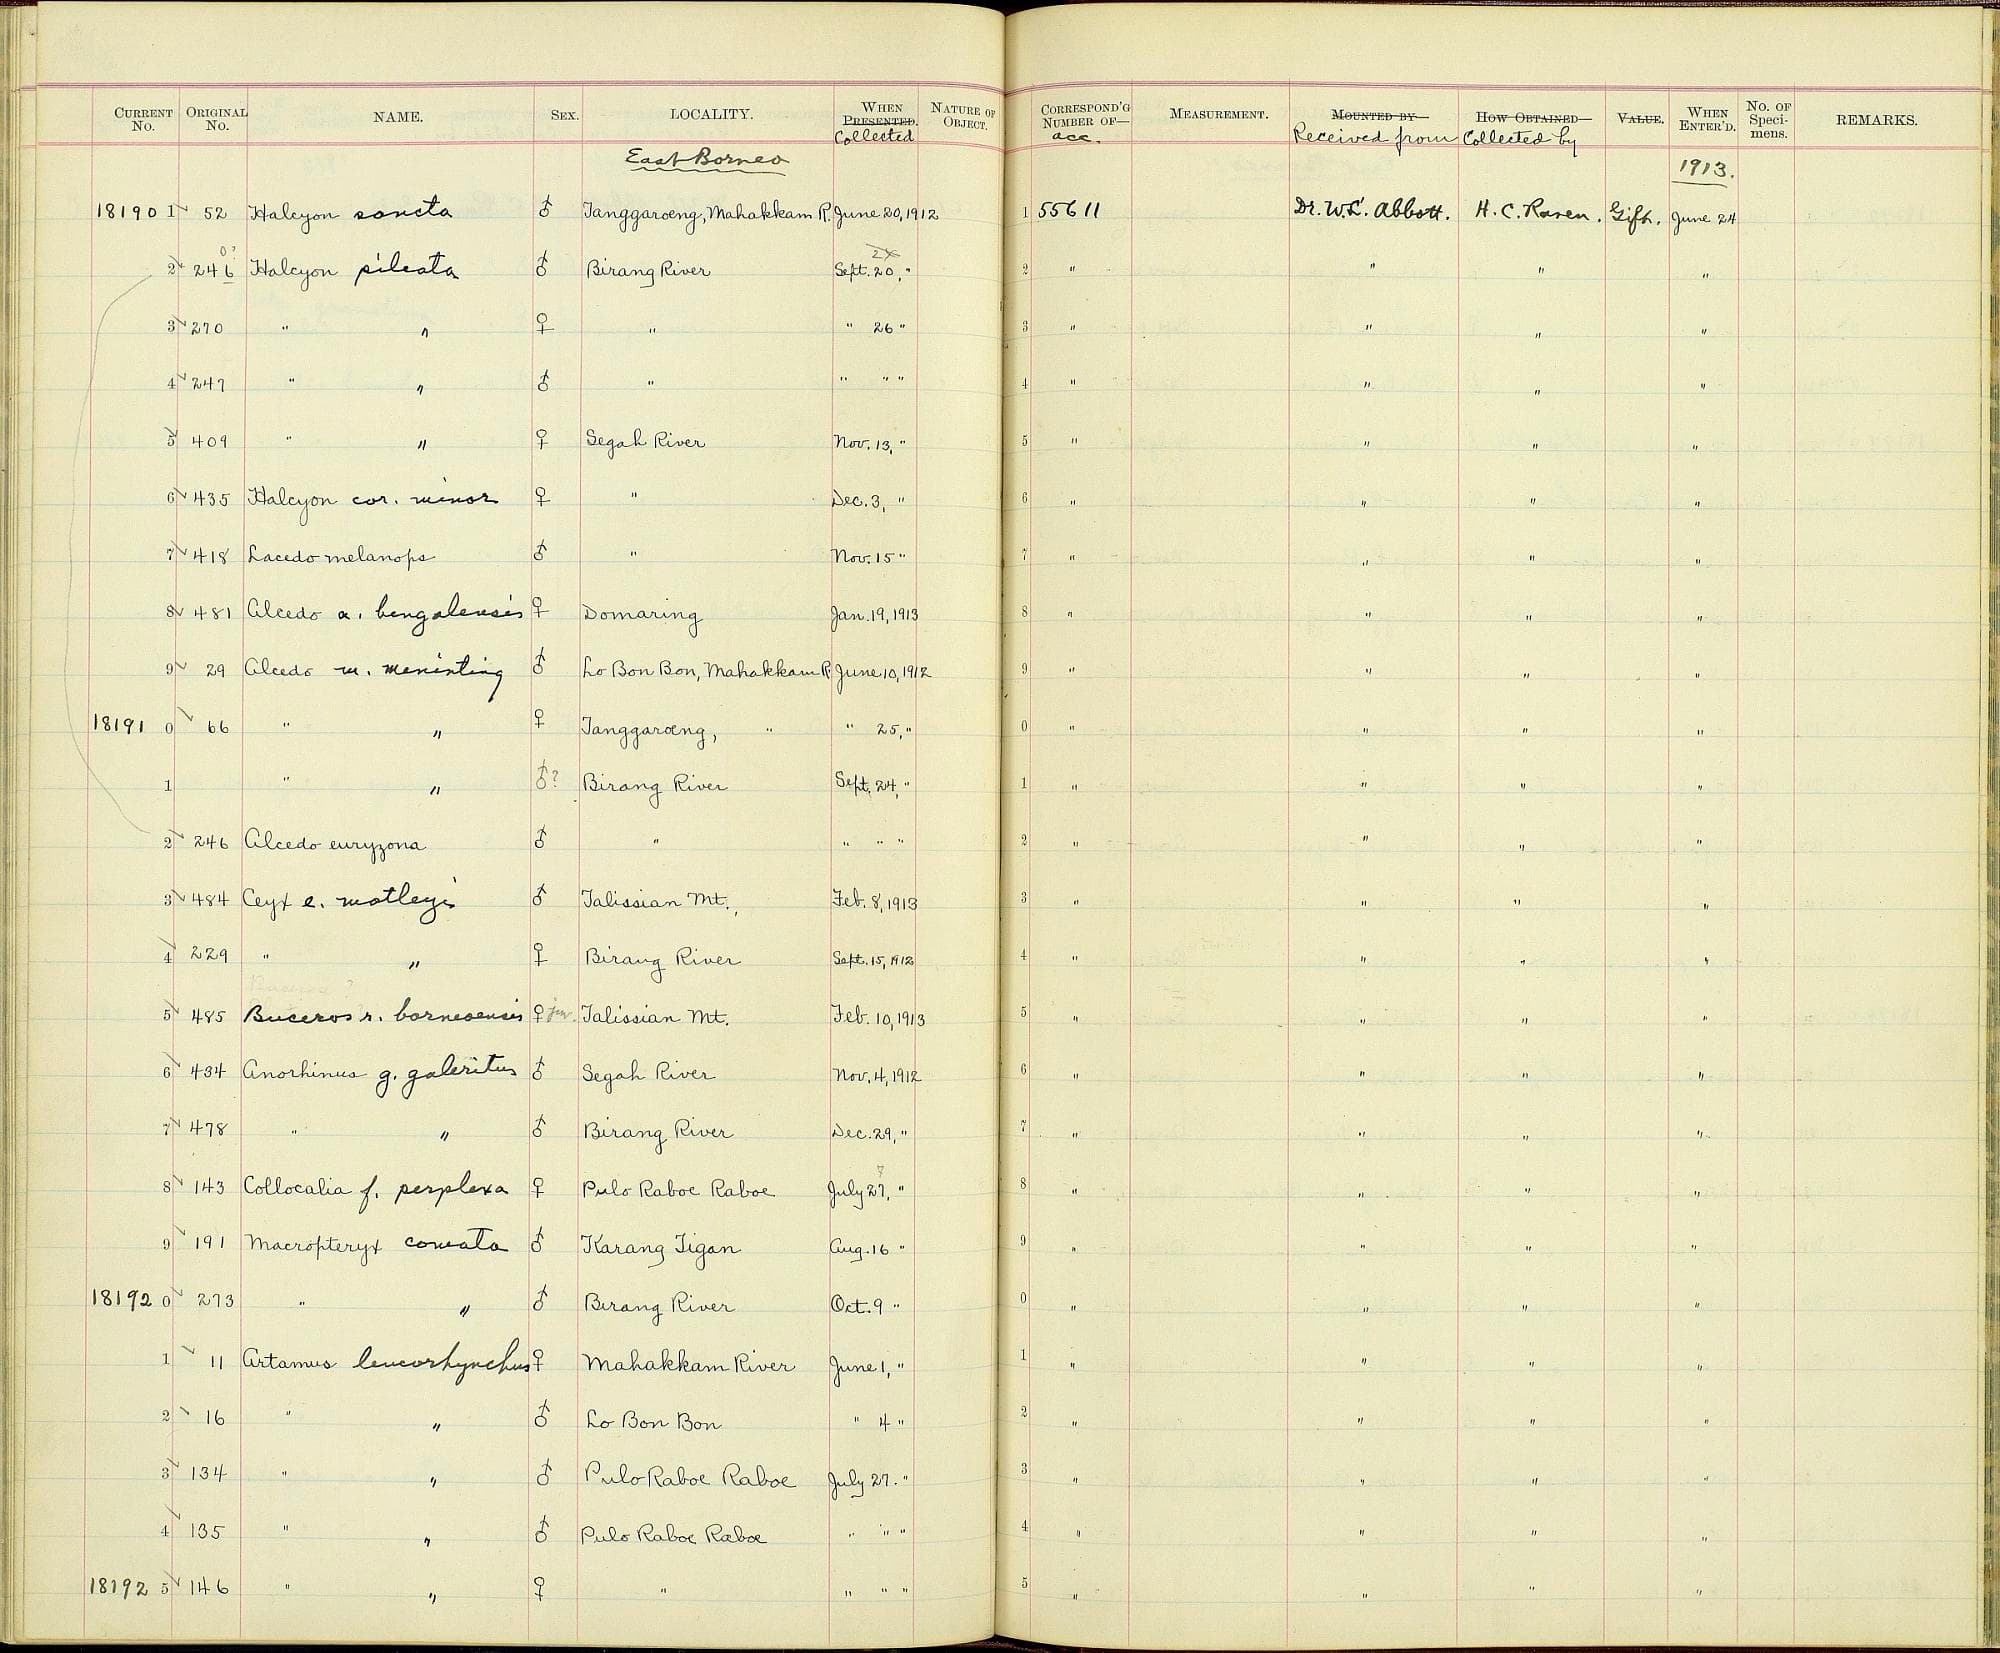 CURRENT No. ORIGINAL No. NAME. SEX. LOCALITY. WHEN PRESENTED. Collected NATURE OF OBJECT. CORRESPOND'G NUMBER OF— acc. MEASUREMENT. MOUNTED BY— Received from HOW OBTAINED— Collected by VALUE. WHEN ENTER'D. No. OF Speci-mens. REMARKS.
East Borneo 1913.
18190 1 52 Halcyon sancta ♂ Tanggaroeng, Mahakkam R. June 20, 1912 1 55611 Dr. W. L. Abbott. H. C. Raven. Gift. June 24
2 246 0? Halcyon pileata ♂ Birang River Sept. 20, " 2 " " " "
3 270 " " ♀ " " 26 " 3 " " " "
4 247 " " ♂ " " " " 4 " " " "
5 409 " " ♀ Segah River Nov. 13, " 5 " " " "
6 435 Halcyon cor. minor ♀ " Dec. 3, " 6 " " " "
7 418 Lacedo melanops ♂ " Nov. 15 " 7 " " " "
8 481 Alcedo a. bengalensis ♀ Domaring Jan. 19, 1913 8 " " " "
9 29 Alcedo m. meninting ♂ Lo Bon Bon, Mahakkam R June 10, 1912 9 " " " "
18191 0 66 " " ♀ Tanggaroeng, " " 25, " 0 " " " "
1 " " ♂? Birang River Sept. 24, " 1 " " " "
2 246 Alcedo euryzona ♂ " " " " 2 " " " "
3 484 Ceyx e. motleyi ♂ Talissian Mt., Feb. 8, 1913 3 " " " "
4 229 " " ♀ Birang River Sept. 15, 1912 4 " " " "
Buceros ?
5 485 Buceros r. borneoensis ♀ juv. Talissian Mt. Feb. 10, 1913 5 " " " "
6 434 Anorhinus g. galeritus ♂ Segah River Nov. 4, 1912 6 " " " "
7 478 " " ♂ Birang River Dec. 29, " 7 " " " "
8 143 Collocalia f. perplexa ♀ Pulo Raboe Raboe July 27, " 7 8 " " " "
9 191 Macropteryx comata ♂ Karang Tigan Aug. 16 " 9 " " " "
18192 0 273 " " ♂ Birang River Oct. 9 " 0 " " " "
1 11 Artamus leucorhynchus ♀ Mahakkam River June 1, " 1 " " " "
2 16 " " ♂ Lo Bon Bon " 4 " 2 " " " "
3 134 " " ♂ Pulo Raboe Raboe July 27. " 3 " " " "
4 135 " " ♂ Pulo Raboe Raboe " " " 4 " " " "
18192 5 146 " " ♀ " " " " 5 " " " "